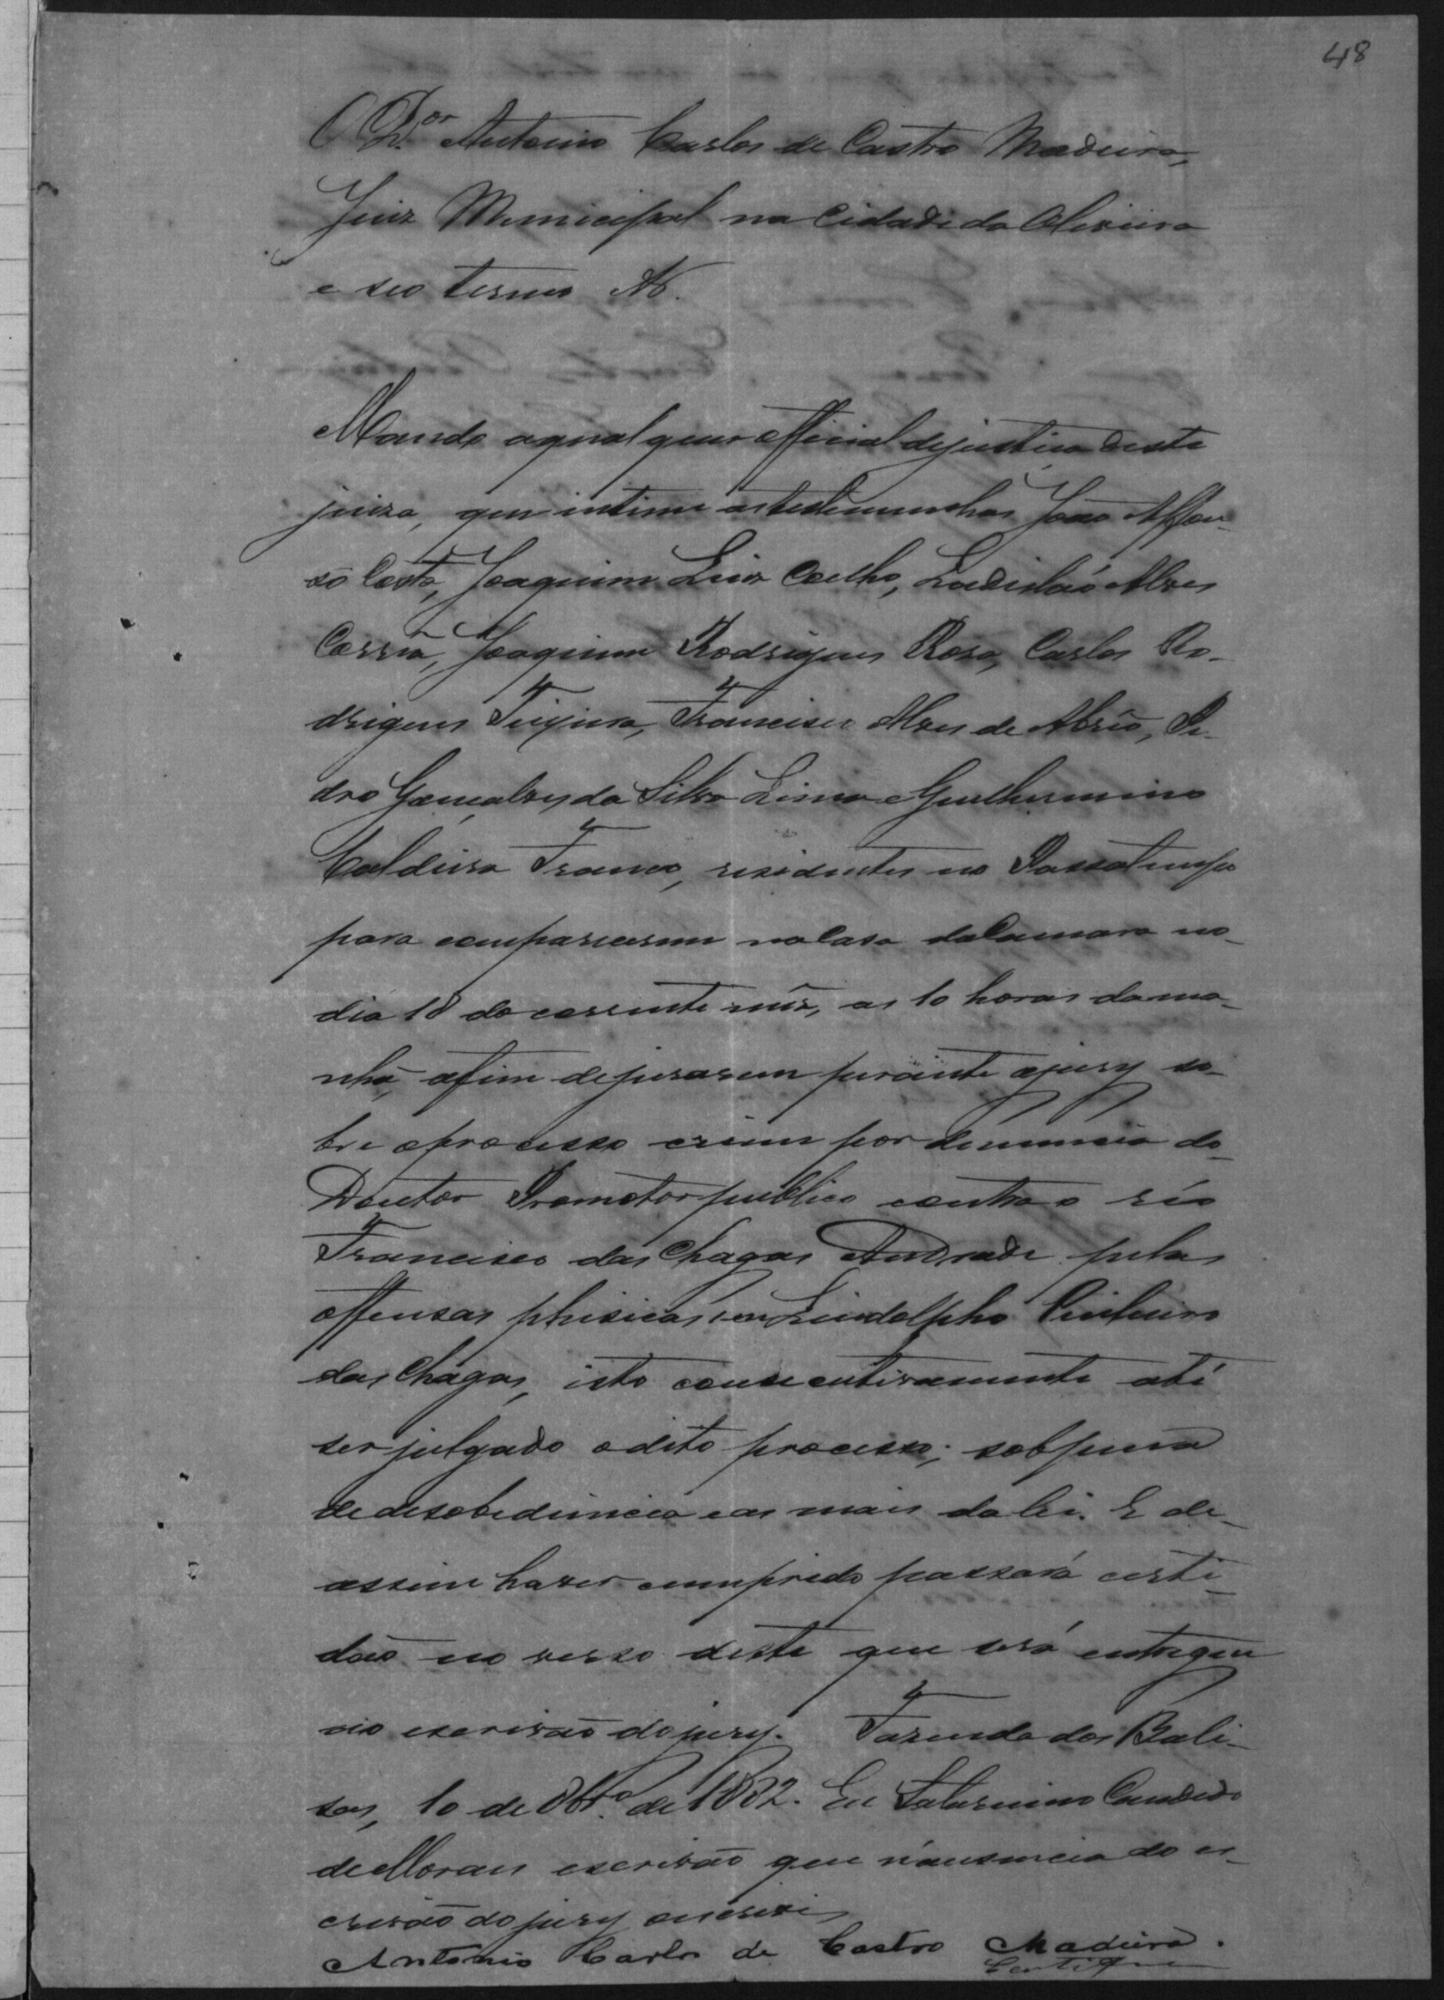 48
O D.or Antonio Carlos de Castro Madeira,
Juiz Municipal na Cidade da Oliveira
e seo termo &.
Mando a qualquer official de justiça deste
juizo, que intime as testemunhas João Affon-
so Costa, Joaquim Luiz Coelho, Ladisláo Alves
Corrêa, Joaquim Rodrigues Rosa, Carlos Ro-
drigues Teixeira, Francisco Alves de Abrêo, Pe-
dro Gonçalves da Silva Lima e Guilhermino
Caldeira Franco, residentes no Passatempo
para comparecerem na Casa da Camara no
dia 18 do corrente mêz, as 10 horas da ma-
nhã, afim de jurarem perante o jury so-
bre o processo crime por denuncia do
Doutor Promotor publico contra o réo
Francisco das Chagas Andrade pelas
offensas phisicas em Lindolpho Pinheiro
das Chagas, isto consecutivamente até
ser julgado o dito processo; sob pena
de desobediencia e as mais da lei. E de
assim haver cumprido passará certi-
dão no verso deste que será entregue
aio escrivão do jury. Fazenda dos Bali-
sas, 10 de 8br.o de 1882. Eu Saturnino Candido
de Moraes escrivão que n'ausencia do es-
crivão do jury escrevi
Antonio Carlos de Castro Madeira.
Certifico